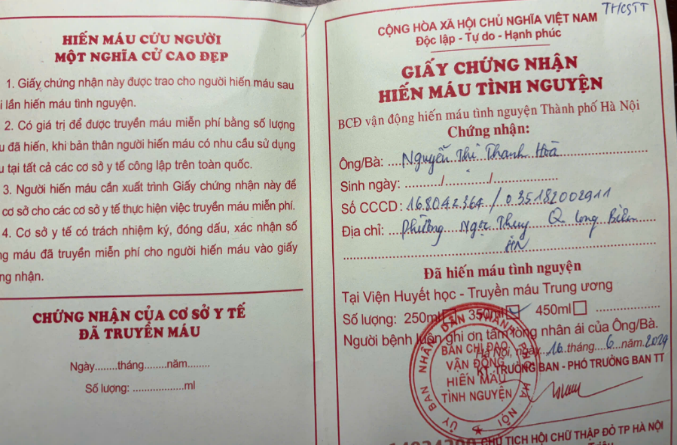 HIẾN MÁU CỨU NGƯỜI
MỘT NGHĨA CỬ CAO ĐẸP
1. Giấy chứng nhận này được trao cho người hiến máu sau
lần hiến máu tình nguyện.
2. Có giá trị để được truyền máu miễn phí bằng số lượng
đã hiến, khi bản thân người hiến máu có nhu cầu sử dụng
tại tất cả các cơ sở y tế công lập trên toàn quốc.
3. Người hiến máu cần xuất trình Giấy chứng nhận này để
cơ sở cho các cơ sở y tế thực hiện việc truyền máu miễn phí.
4. Cơ sở y tế có trách nhiệm ký, đóng dấu, xác nhận số
máu đã truyền miễn phí cho người hiến máu vào giấy
nhận.
CHỨNG NHẬN CỦA CƠ SỞ Y TẾ
ĐÃ TRUYỀN MÁU
Ngày........tháng........năm........
Số lượng: ................ml
CỘNG HÒA XÃ HỘI CHỦ NGHĨA VIỆT NAM
Độc lập - Tự do - Hạnh phúc
GIẤY CHỨNG NHẬN
HIẾN MÁU TÌNH NGUYỆN
BCĐ vận động hiến máu tình nguyện Thành phố Hà Nội
Chứng nhận:
Ông/Bà: Nguyễn Thị Thanh Hoà
Sinh ngày: ......./......./.......
Số CCCD: 168042364 / 035182002911
Địa chỉ: Phường Ngọc Thụy Q Long Biên
HN
Đã hiến máu tình nguyện
Tại Viện Huyết học - Truyền máu Trung ương
Số lượng: 250ml 350ml 450ml
Người bệnh luôn ghi ơn tấm lòng nhân ái của Ông/Bà.
Hà Nội, ngày 16 tháng 6 năm 2024
KT. TRƯỞNG BAN - PHÓ TRƯỞNG BAN TT
ỦY BAN NHÂN DÂN THÀNH PHỐ HÀ NỘI
BAN CHỈ ĐẠO
VẬN ĐỘNG
HIẾN MÁU
TÌNH NGUYỆN
PHÓ CHỦ TỊCH HỘI CHỮ THẬP ĐỎ TP HÀ NỘI